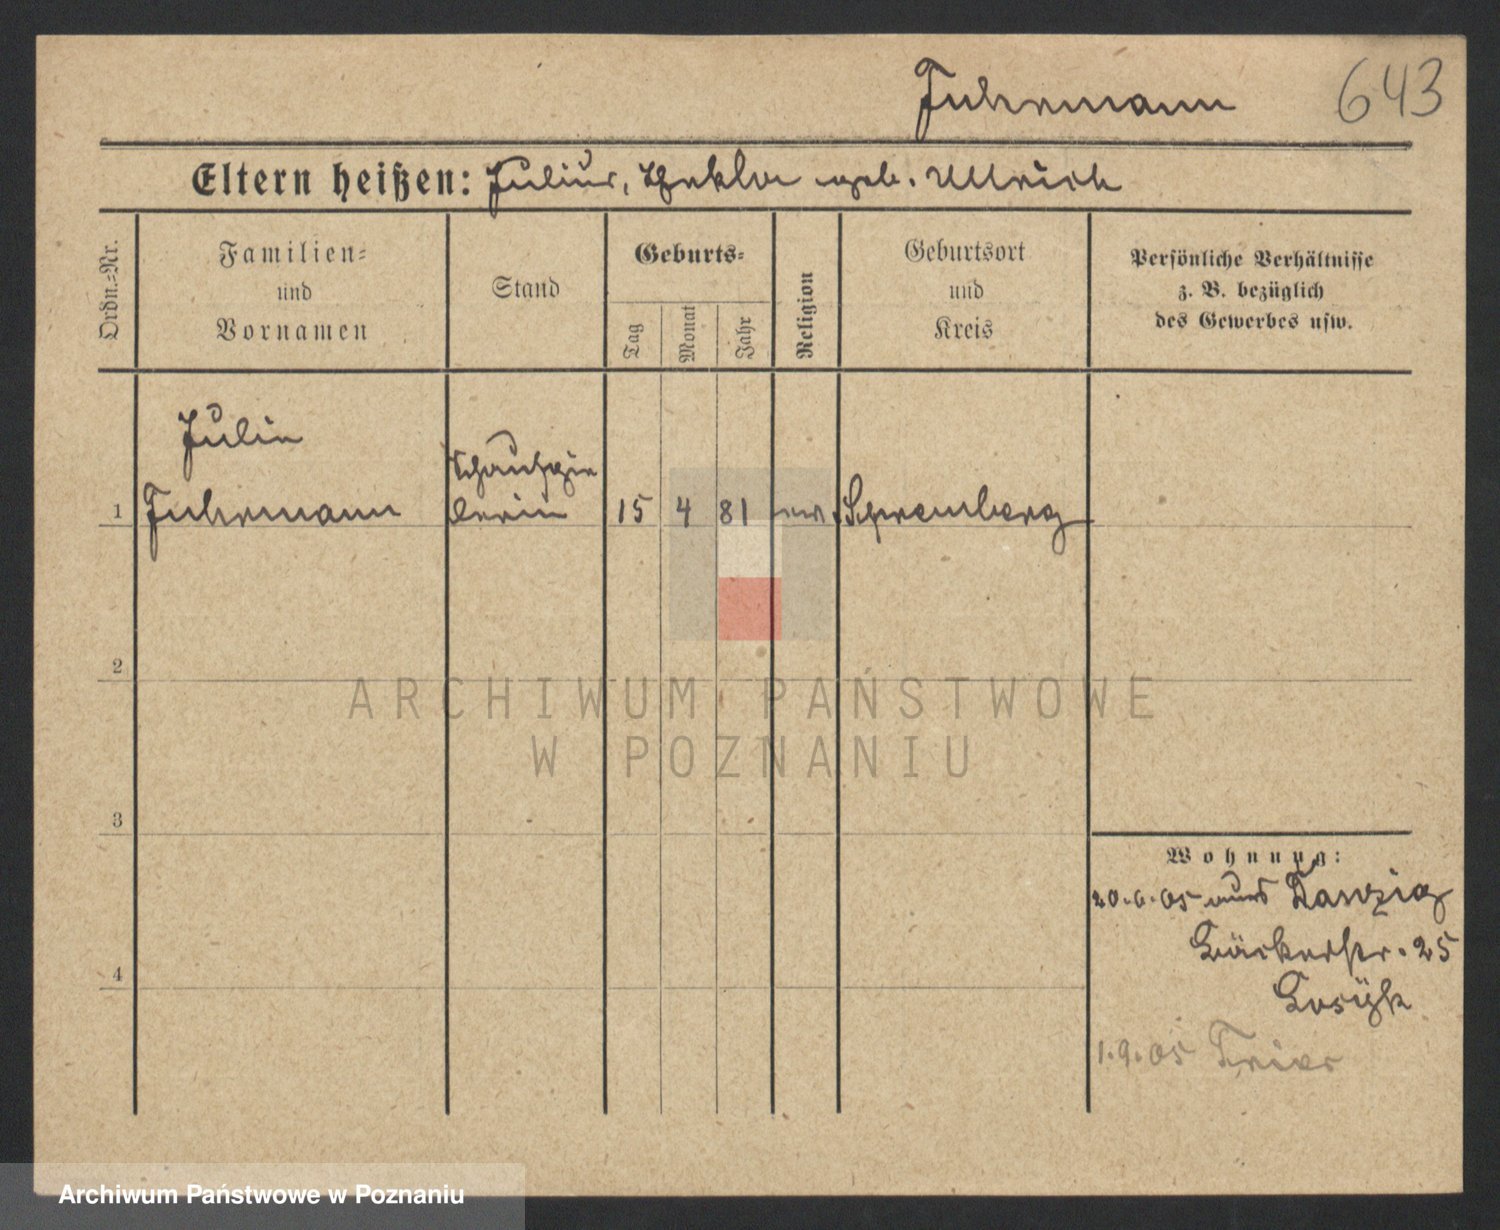 Fuhrmann 643
Eltern heißen: Julius, Thekla geb. Ullrich
Ordn.=Nr.
Familien=
und
Vornamen
Stand
Geburts=
Tag
Monat
Jahr
Religion
Geburtsort
und
Kreis
Persönliche Verhältnisse
z. B. bezüglich
des Gewerbes usw.
Julie
Schauspie
1 Fuhrmann lerin 15 4 81 ev. Spremberg
2
ARCHIWUM PAŃSTWOWE
W POZNANIU
3
Wohnung:
20.6.05 aus Danzig
Bäckerstr. 25
4
1.9.05 Trier
Archiwum Państwowe w Poznaniu